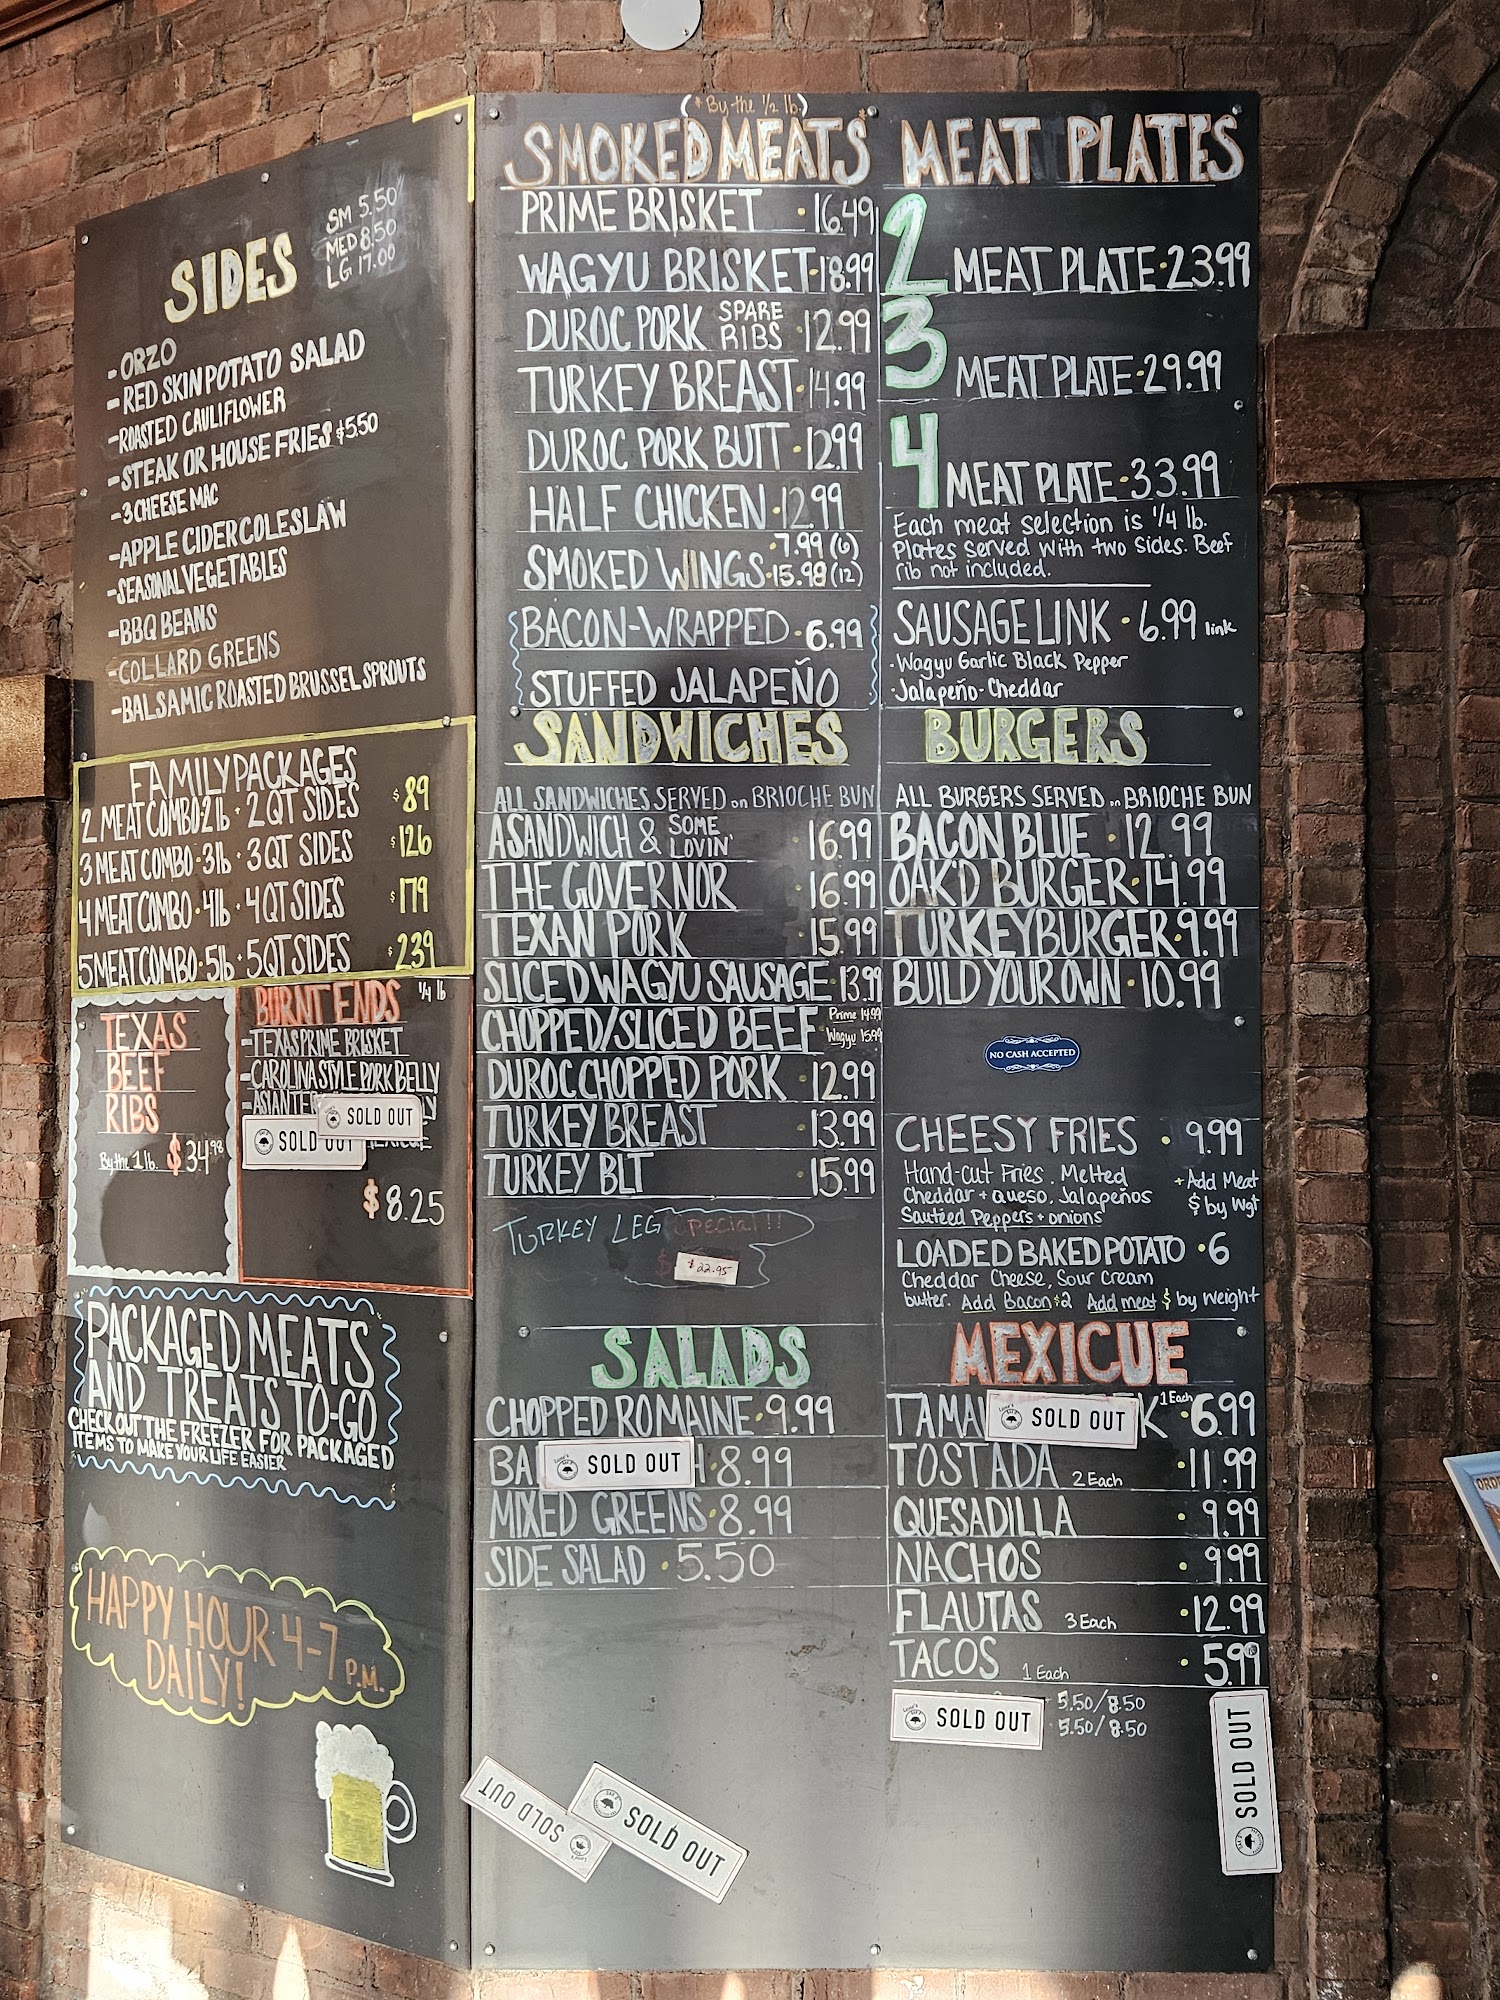 SIDES
SM 5.50
MED 8.50
LG 17.00
-ORZO
-RED SKIN POTATO SALAD
-ROASTED CAULIFLOWER
-STEAK OR HOUSE FRIES $5.50
-3 CHEESE MAC
-APPLE CIDER COLESLAW
-SEASONAL VEGETABLES
-BBQ BEANS
-COLLARD GREENS
-BALSAMIC ROASTED BRUSSEL SPROUTS
FAMILY PACKAGES
2 MEAT COMBO·2lb · 2 QT SIDES $89
3 MEAT COMBO·3lb · 3 QT SIDES $126
4 MEAT COMBO·4lb · 4 QT SIDES $179
5 MEAT COMBO·5lb · 5 QT SIDES $239
TEXAS
BEEF
RIBS
By the 1 lb. $34.98
BURNT ENDS 1/4 lb
-TEXAS PRIME BRISKET
-CAROLINA STYLE PORK BELLY
SOLD OUT
SOLD OUT
$8.25
PACKAGED MEATS
AND TREATS TO-GO
CHECK OUT THE FREEZER FOR PACKAGED
ITEMS TO MAKE YOUR LIFE EASIER
HAPPY HOUR 4-7 P.M.
DAILY!
(*By the 1/2 lb.)
SMOKED MEATS*
PRIME BRISKET · 16.49
WAGYU BRISKET · 18.99
DUROC PORK SPARE RIBS · 12.99
TURKEY BREAST · 14.99
DUROC PORK BUTT · 12.99
HALF CHICKEN · 12.99
SMOKED WINGS · 7.99 (6)
· 15.98 (12)
BACON-WRAPPED · 6.99
STUFFED JALAPEÑO
SANDWICHES
ALL SANDWICHES SERVED on BRIOCHE BUN
A SANDWICH & SOME LOVIN' · 16.99
THE GOVERNOR · 16.99
TEXAN PORK · 15.99
SLICED WAGYU SAUSAGE · 13.99
CHOPPED/SLICED BEEF Prime 14.99
Wagyu 15.99
DUROC CHOPPED PORK · 12.99
TURKEY BREAST · 13.99
TURKEY BLT · 15.99
TURKEY LEG Special!!
$22.95
SALADS
CHOPPED ROMAINE · 9.99
SOLD OUT · 8.99
MIXED GREENS · 8.99
SIDE SALAD · 5.50
SOLD OUT
SOLD OUT
MEAT PLATES
2 MEAT PLATE · 23.99
3 MEAT PLATE · 29.99
4 MEAT PLATE · 33.99
Each meat selection is 1/4 lb.
Plates served with two sides. Beef
rib not included.
SAUSAGE LINK · 6.99 link
·Wagyu Garlic Black Pepper
·Jalapeño-Cheddar
BURGERS
ALL BURGERS SERVED on BRIOCHE BUN
BACON BLUE · 12.99
OAK'D BURGER · 14.99
TURKEY BURGER · 9.99
BUILD YOUR OWN · 10.99
NO CASH ACCEPTED
CHEESY FRIES · 9.99
Hand-cut Fries. Melted
Cheddar + queso. Jalapeños
Sautéed Peppers + onions
+Add Meat
$ by Wgt
LOADED BAKED POTATO · 6
Cheddar Cheese, Sour Cream
butter. Add Bacon $2 Add meat $ by weight
MEXICUE
SOLD OUT 1 Each · 6.99
TOSTADA 2 Each · 11.99
QUESADILLA · 9.99
NACHOS · 9.99
FLAUTAS 3 Each · 12.99
TACOS 1 Each · 5.99
SOLD OUT
5.50/8.50
5.50/8.50
SOLD OUT